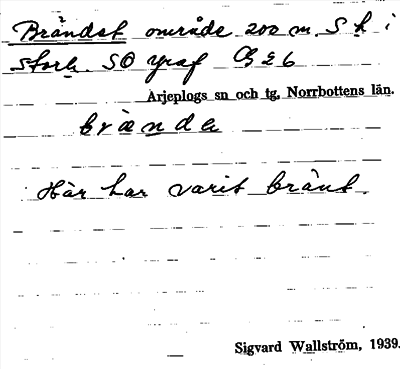 Brändet område 200 m. S k i
Stork. SO graf G 26
Arjeplogs sn och tg, Norrbottens län.
brände
Här har varit bränt.
Sigvard Wallström, 1939.